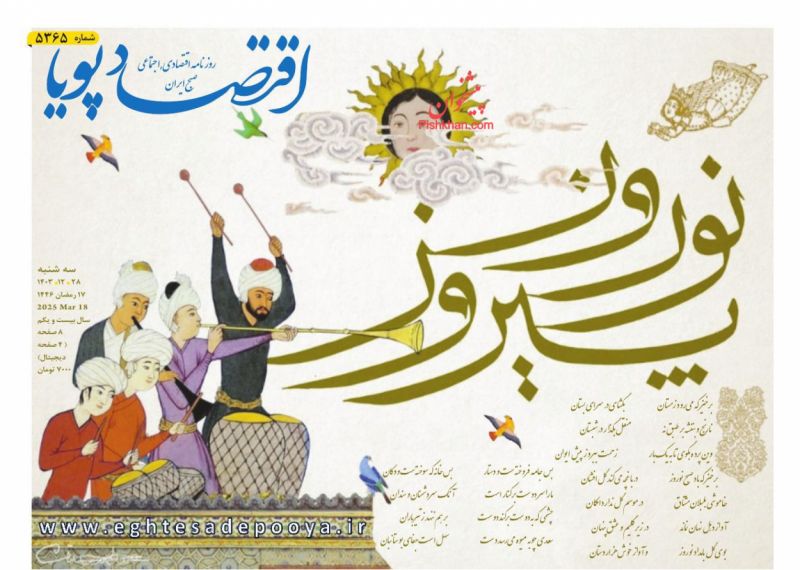 شماره ۵۳۶۵
اقتصاد پویا
روزنامه اقتصادی، اجتماعی
صبح ایران
پیشخوان
Pishkhan.com
نوروز
پیروز
سه شنبه
۱۴۰۳ ٫ ۱۲ ٫ ۲۸
۱۷ رمضان ۱۴۴۶
2025 Mar 18
سال بیست و یکم
۸ صفحه
(۴ صفحه
دیجیتال)
۷۰۰۰ تومان
برخیز که می رود زمستان
بگشای در سرای بستان
نارنج و بنفشه بر طبق نه
منقل بگذار در شبستان
وین پرده بگوی تا به یک بار
زحمت ببرد ز پیش ایوان
برخیز که باد صبح نوروز
در باغچه می کند گل افشان
خاموشی بلبلان مشتاق
در موسم گل ندارد امکان
آواز دهل نهان نماند
در زیر گلیم و عشق پنهان
بوی گل بامداد نوروز
و آواز خوش هزاردستان
بس جامه فروخت ست و دستار
بس خانه که سوخت ست و دکان
ما را سر دوست بر کنار است
آنک سر دشمنان و سندان
چشمی که به دوست برکند دوست
بر هم ننهد ز تیرباران
سعدی چو به میوه می رسد دست
سهل است جفای بوستانبان
www.eghtesadepooya.ir